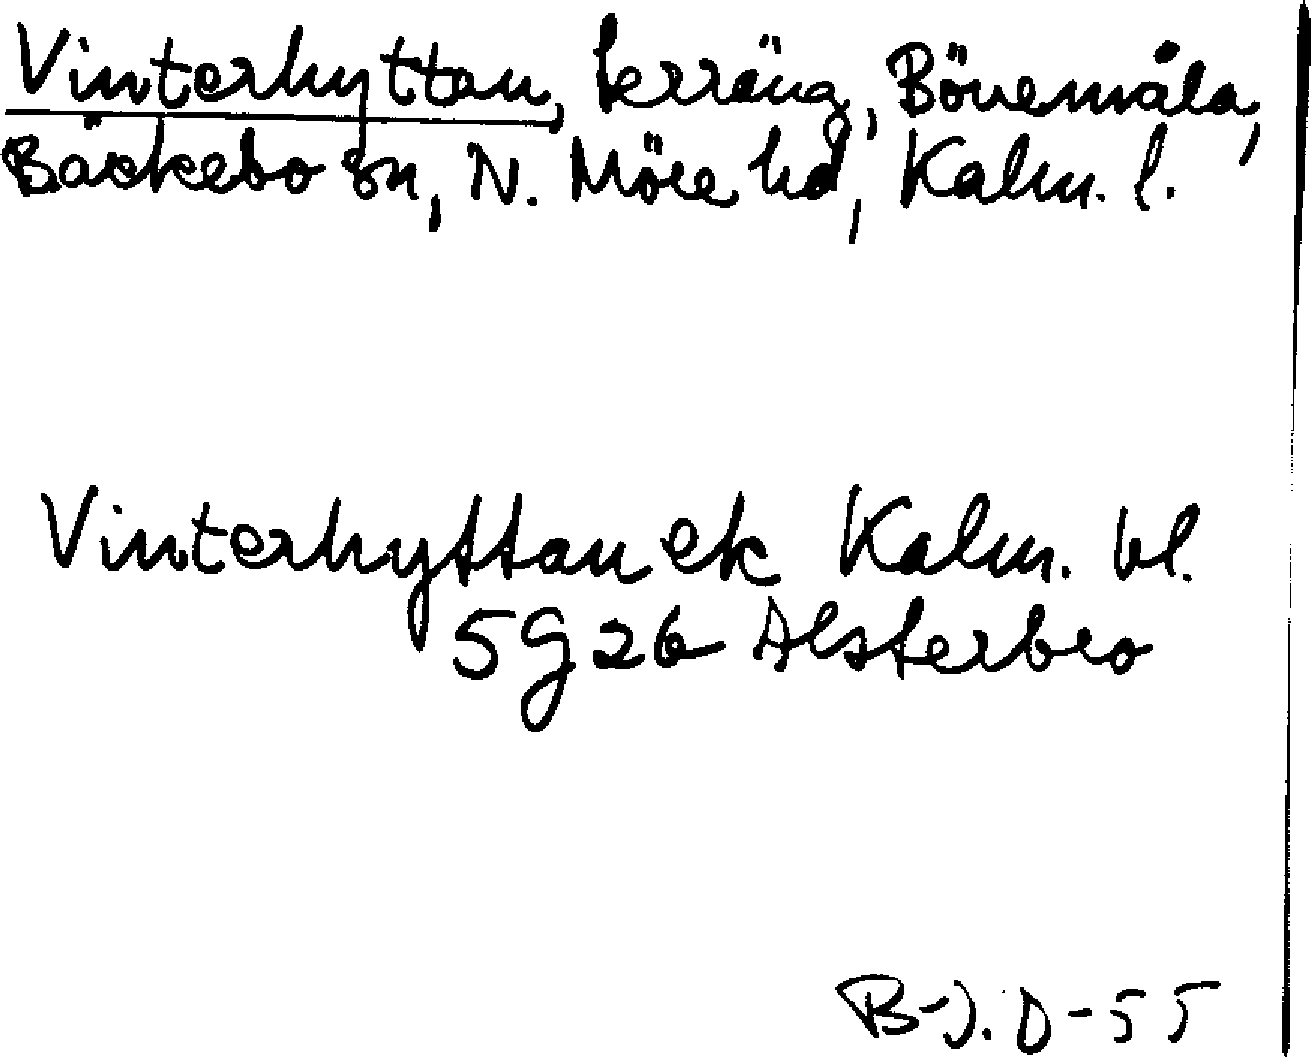 Vinterhyttan, terräng, Bövemåla,
Bäckebo sn, N. Möre hd, Kalm. l.
Vinterhyttan ek Kalm. bl.
5G2b Alsterbro
B-J. D-55